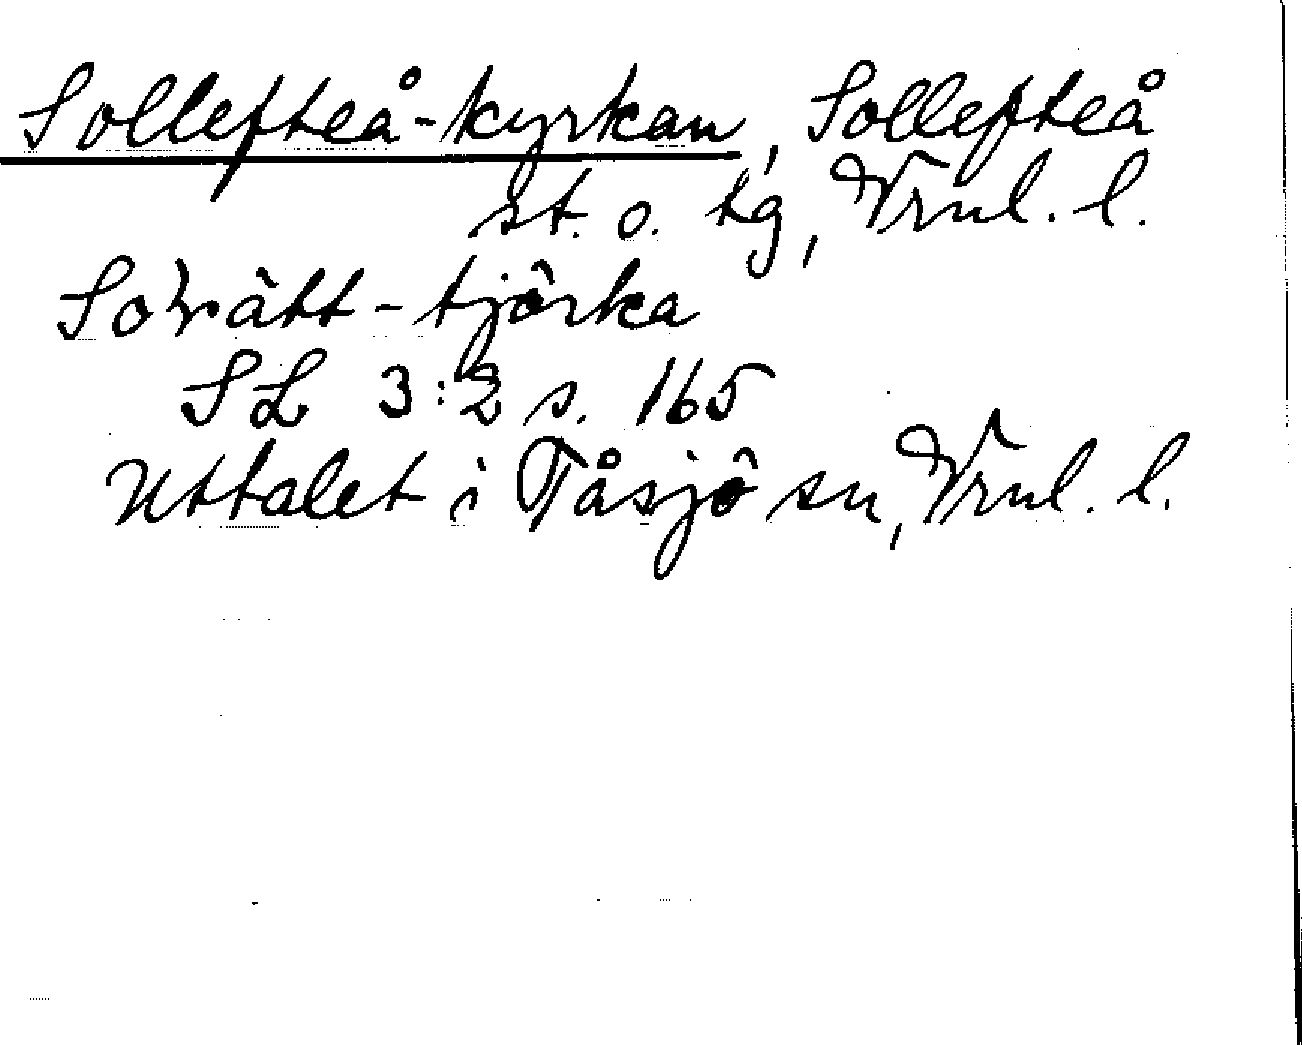 Sollefteå-kyrkan, Sollefteå
st. o. tg, Vrnl. l.
-tjörka
SL 3:2 s. 165
Uttalet i Tåsjö sn, Vrnl. l.